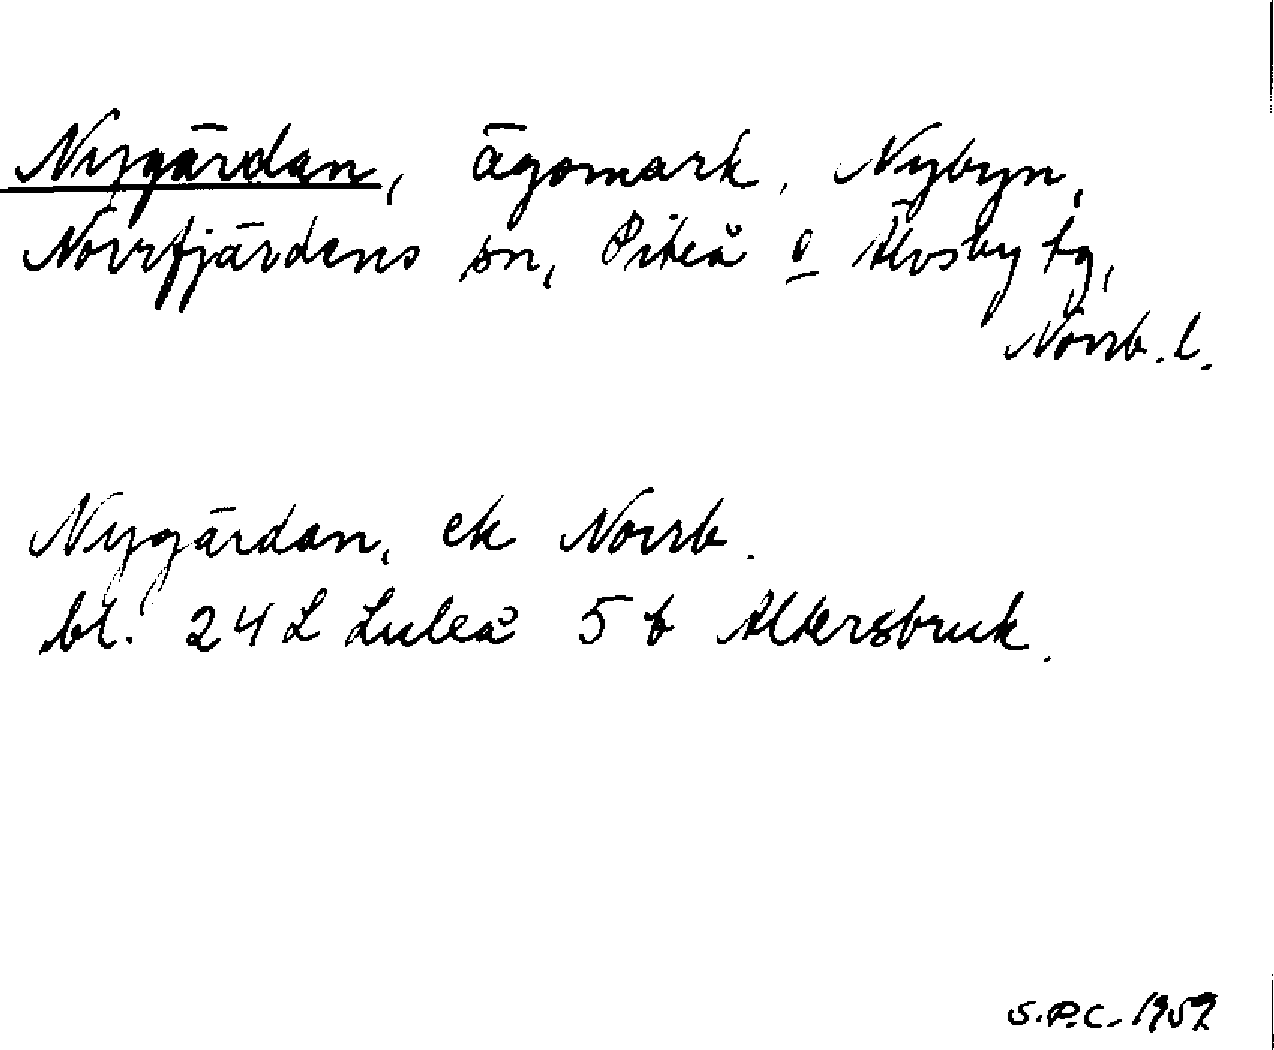 Nygärdan, ägomark, Nybyn,
Norrfjärdens sn, Piteå o Älvsby tg,
Norrb. l.
Nygärdan, ek Norrb.
bl. 24 L Luleå 5 b Altersbruk.
S.P.C. 1959